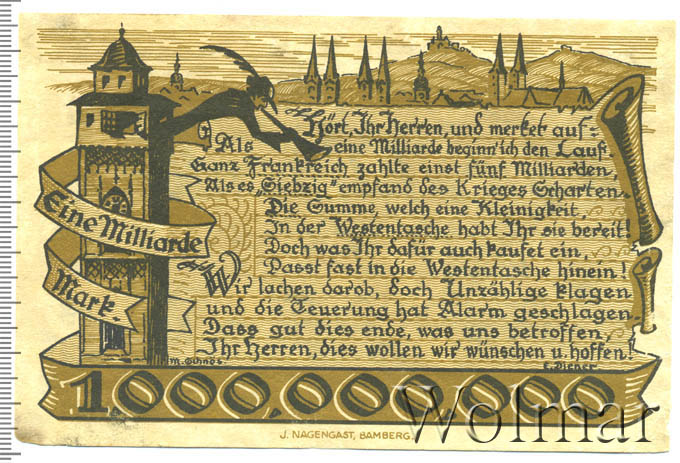 Hört, Ihr Herren, und merket auf:
Als eine Milliarde beginn' ich den Lauf.
Ganz Frankreich zahlte einst fünf Milliarden,
Als es „Siebzig" empfand des Krieges Scharten.
Die Summe, welch eine Kleinigkeit,
In der Westentasche habt Ihr sie bereit!
Doch was Ihr dafür auch kaufet ein,
Passt fast in die Westentasche hinein!
Wir lachen darob, doch Unzählige klagen
und die Teuerung hat Alarm geschlagen.
Dass gut dies ende, was uns betroffen,
Ihr Herren, dies wollen wir wünschen u. hoffen.
Eine Milliarde
Mark.
M. Schnös.
E. Diener
1000,000.000
J. NAGENGAST, BAMBERG.
Wolmar